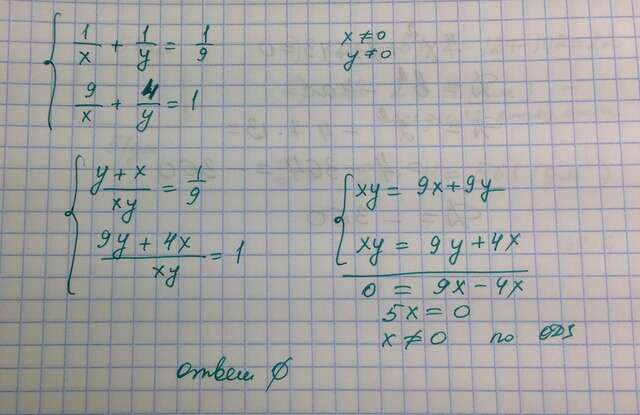 1/x + 1/y = 1/9
x ≠ 0
y ≠ 0
9/x + 4/y = 1
(y + x)/xy = 1/9
(9y + 4x)/xy = 1
xy = 9x + 9y
xy = 9y + 4x
0 = 9x - 4x
5x = 0
x ≠ 0 по ОДЗ
ответ ∅